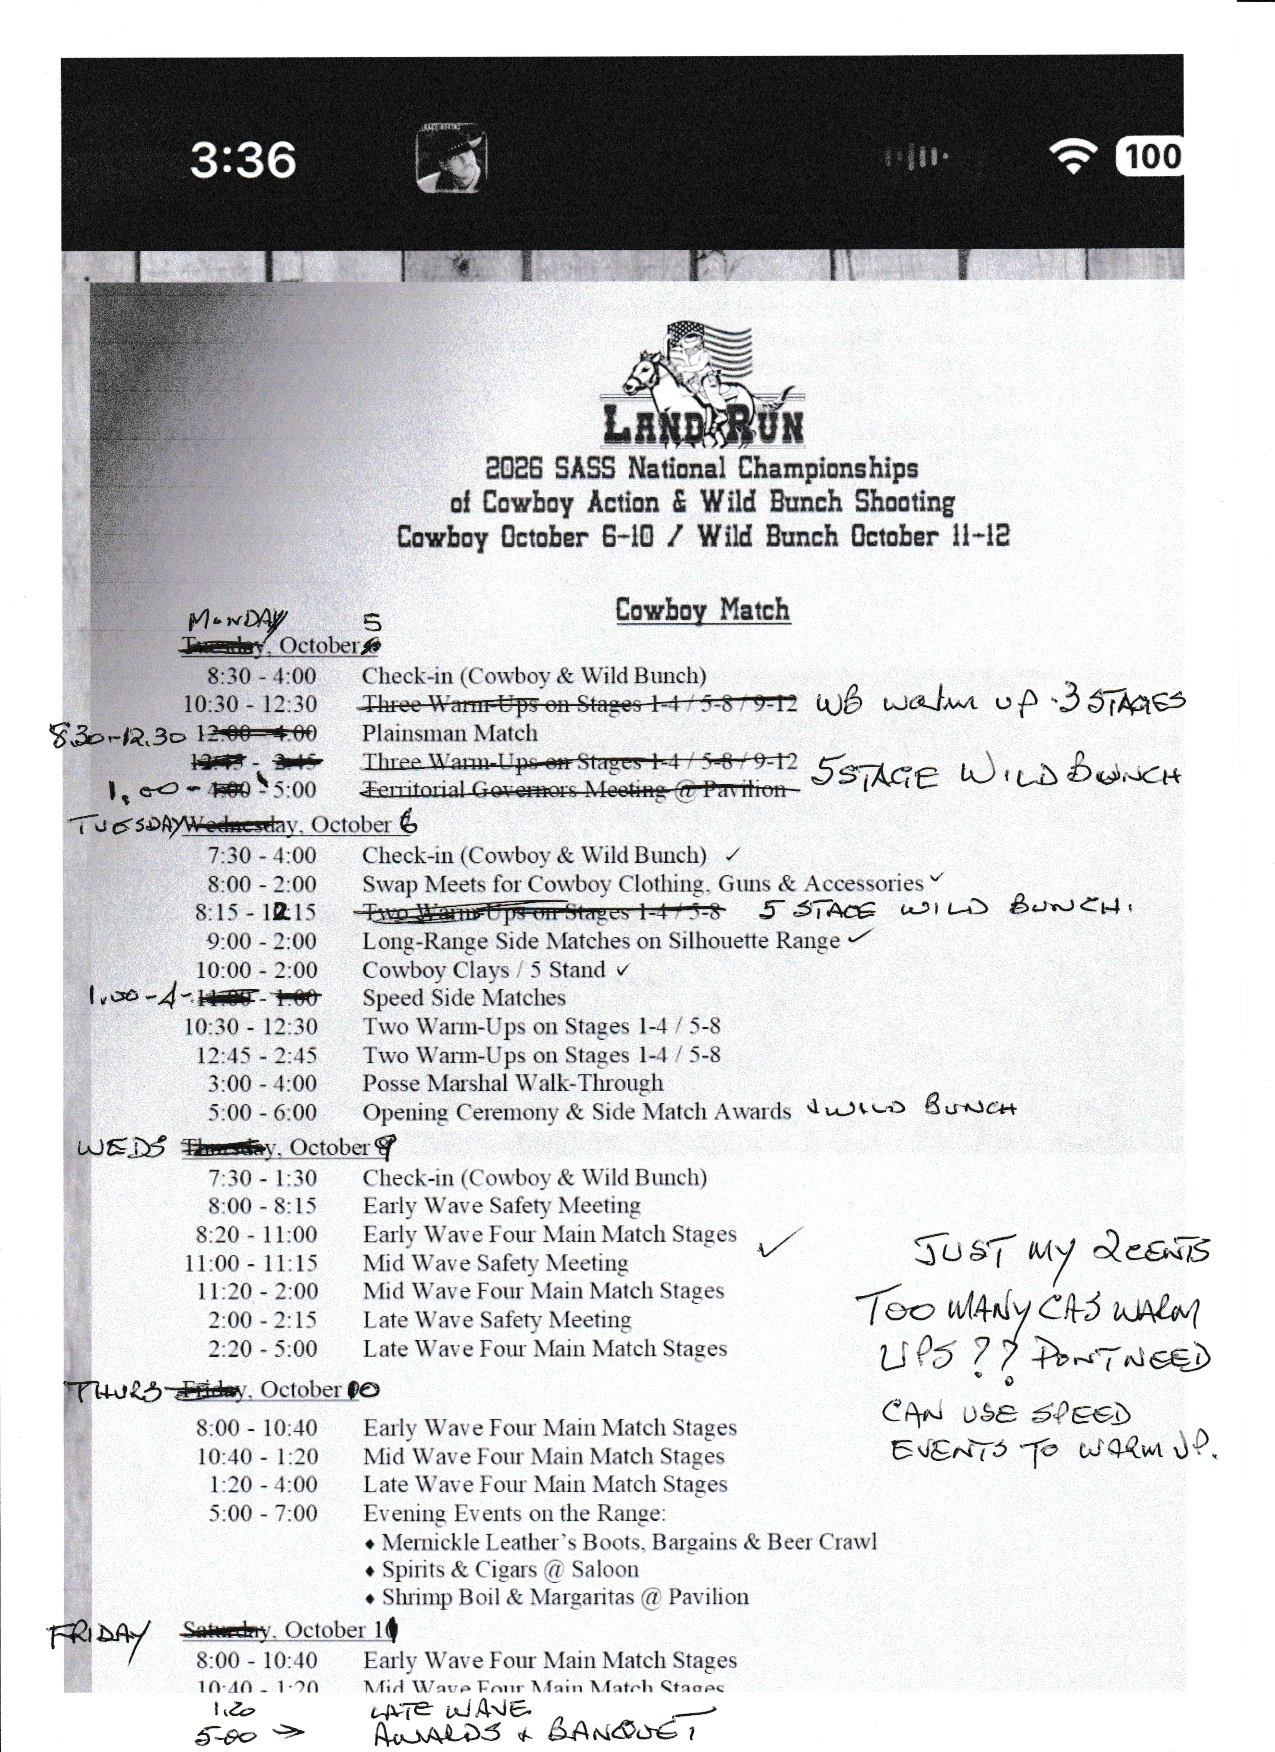 3:36 100
LAND RUN
2026 SASS National Championships
of Cowboy Action & Wild Bunch Shooting
Cowboy October 6-10 / Wild Bunch October 11-12
Cowboy Match
MONDAY 5
Tuesday, October
8:30 - 4:00 Check-in (Cowboy & Wild Bunch)
10:30 - 12:30 Three Warm-Ups on Stages 1-4 / 5-8 / 9-12 WB WARM UP . 3 STAGES
8.30-12.30 12:00 - 4:00 Plainsman Match
12:45 - 2:45 Three Warm-Ups on Stages 1-4 / 5-8 / 9-12 5 STAGE WILD BUNCH
1.00 - 4:00 - 5:00 Territorial Governors Meeting @ Pavilion
TUESDAY Wednesday, October 6
7:30 - 4:00 Check-in (Cowboy & Wild Bunch) ✓
8:00 - 2:00 Swap Meets for Cowboy Clothing, Guns & Accessories ✓
8:15 - 12:15 Two Warm-Ups on Stages 1-4 / 5-8 5 STAGE WILD BUNCH.
9:00 - 2:00 Long-Range Side Matches on Silhouette Range ✓
10:00 - 2:00 Cowboy Clays / 5 Stand ✓
1.00-4- 11:00 - 1:00 Speed Side Matches
10:30 - 12:30 Two Warm-Ups on Stages 1-4 / 5-8
12:45 - 2:45 Two Warm-Ups on Stages 1-4 / 5-8
3:00 - 4:00 Posse Marshal Walk-Through
5:00 - 6:00 Opening Ceremony & Side Match Awards & WILD BUNCH
WEDS Thursday, October
7:30 - 1:30 Check-in (Cowboy & Wild Bunch)
8:00 - 8:15 Early Wave Safety Meeting
8:20 - 11:00 Early Wave Four Main Match Stages ✓
11:00 - 11:15 Mid Wave Safety Meeting
11:20 - 2:00 Mid Wave Four Main Match Stages
2:00 - 2:15 Late Wave Safety Meeting
2:20 - 5:00 Late Wave Four Main Match Stages
JUST MY 2 CENTS
TOO MANY CAS WARM
UPS ?? DONT NEED
CAN USE SPEED
EVENTS TO WARM UP.
THURS Friday, October 10
8:00 - 10:40 Early Wave Four Main Match Stages
10:40 - 1:20 Mid Wave Four Main Match Stages
1:20 - 4:00 Late Wave Four Main Match Stages
5:00 - 7:00 Evening Events on the Range:
♦ Mernickle Leather's Boots, Bargains & Beer Crawl
♦ Spirits & Cigars @ Saloon
♦ Shrimp Boil & Margaritas @ Pavilion
FRIDAY Saturday, October
8:00 - 10:40 Early Wave Four Main Match Stages
10:40 - 1:20 Mid Wave Four Main Match Stages
1.20 LATE WAVE
5-00 → AWARDS & BANQUET